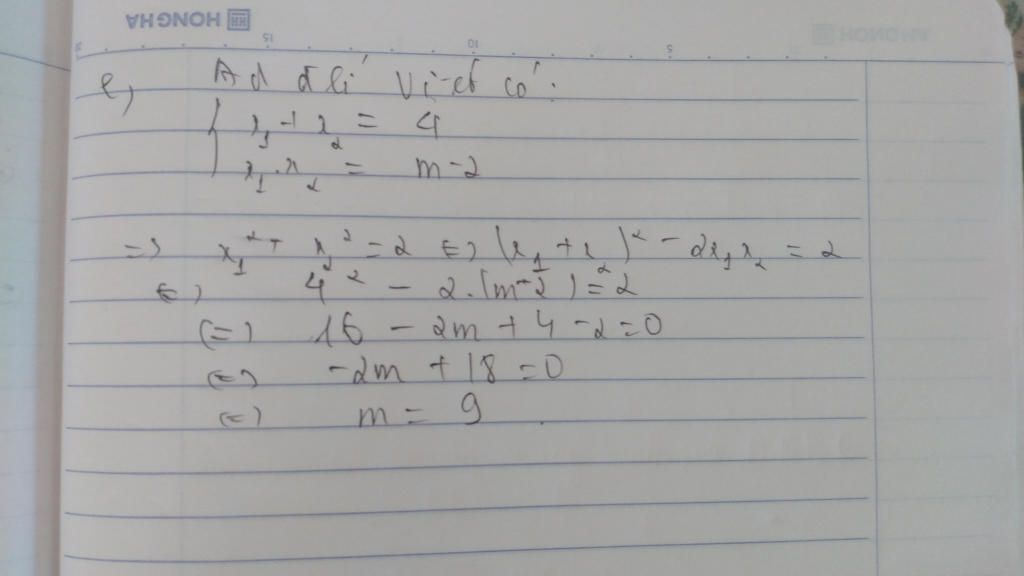 HONG HA
15 10 5
e, Ad đlí Vi-et có:
x₁ + x₂ = 4
x₁.x₂ = m-2
=> x₁² + x₂² = 2 <=> (x₁ + x₂)² - 2x₁x₂ = 2
<=> 4² - 2.(m-2) = 2
<=> 16 - 2m + 4 - 2 = 0
<=> -2m + 18 = 0
<=> m = 9